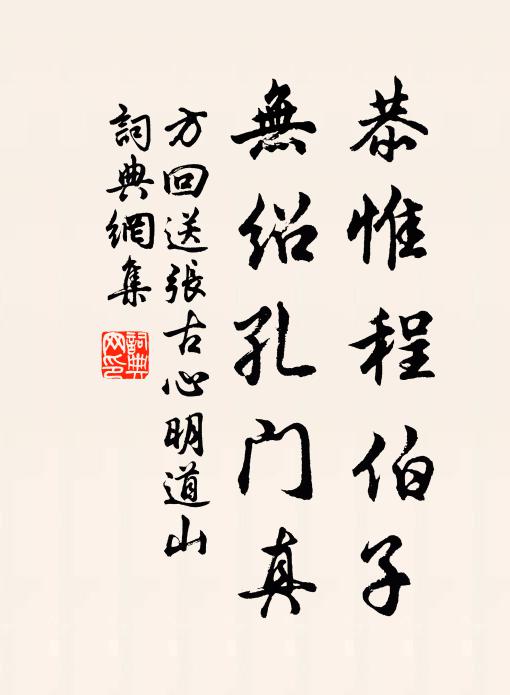 恭惟程伯子
無紹孔门真
方回送張古心明道山
詞典網集